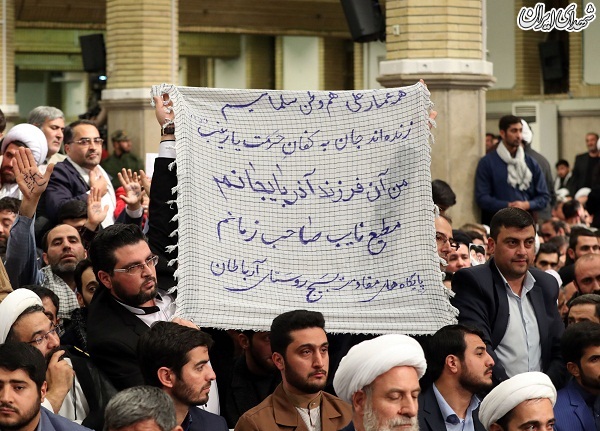 شهدای ایران
هر عمار علی هم وطن سلمانیم
زنده اند جان به کفان حرمت با زینب
من آن فرزند آذربایجانم
مطیع نایب صاحب زمانم
پایگاه های مقاومت بسیج روستای آرباطان